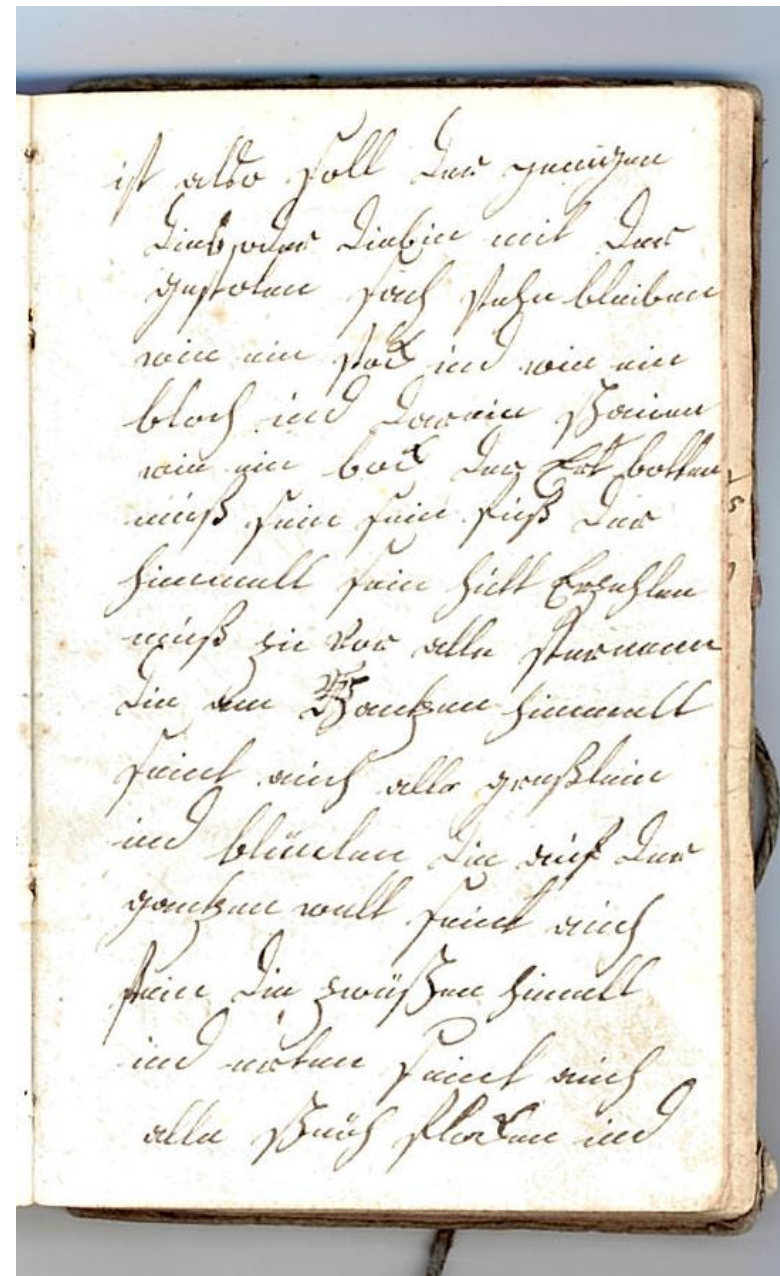 ist also soll der genigen
Dieb oder Diebin mit der
gestolen sach stehn bleiben
wie ein stock und wie ein
bloch und darein schauen
wie ein bock der Ert botten
muß sein sein fuß der
himmell sein hutt Erzehlen
muß zu vor alle sternnen
die am gantzen himmell
seint auch alle greßlein
und blümlen die auf der
gantzen welt seint auch
stein die zwüschen himell
und erten seint auch
alle schnüh flocken und